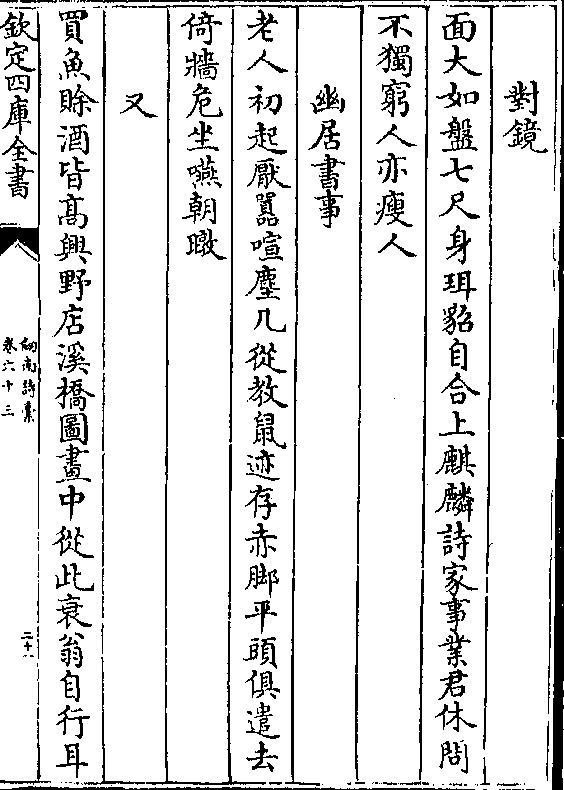 對鏡
面大如盤七尺身珥貂自合上麒麟詩家事業君休問
不獨窮人亦瘦人
幽居書事
老人初起厭囂喧塵几從教鼠迹存赤脚平頭俱遣去
倚牆危坐嚥朝暾
又
買魚賖酒皆髙興野店溪橋圖畫中從此衰翁自行耳
欽定四庫全書
劒南詩稾
卷六十三
二十一